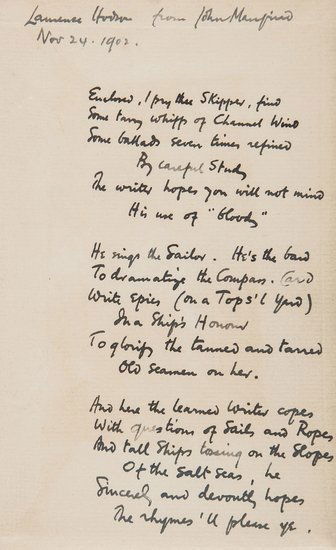 Laurence Hodson from John Masefield
Nov 24. 1902.
Enclosed, I pry thee Skipper, find
Some tarry whiffs of Channel Wind
Some ballads seven times refined
By careful Study
The writer hopes you will not mind
His use of "bloody"
He sings the Sailor. He's the bard
To dramatize the Compass. Card
Write Epics (on a Tops'l Yard)
In a Ship's Honour
To glorify the tanned and tarred
Old Seamen on her.
And here the learned Writer copes
With questions of Sails and Ropes
And tall Ships tossing on the Slopes
Of the Salt Seas, he
Sincerely and devoutly hopes
The rhymes'll please ye.